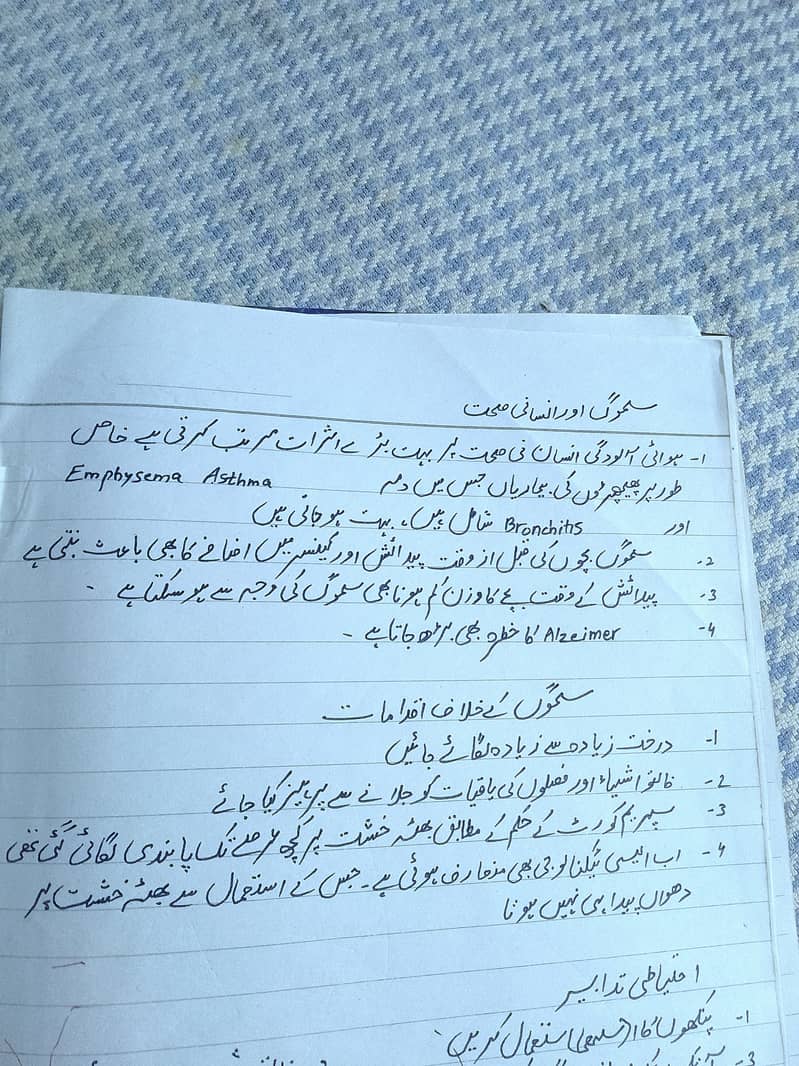 سموگ اور انسانی صحت
1- ہوائی آلودگی انسان نی صحت پر بہت بڑے اثرات مرتب کرتی ہے خاص
طور پر پھیپھڑوں کی بیماریاں جس میں دمہ Emphysema Asthma
اور Bronchitis شامل ہیں، بہت ہو جاتی ہیں
2- سموگ بچوں کی قبل از وقت پیدائش اور کینسر میں اضافے کا بھی باعث بنتی ہے
3- پیدائش کے وقت بچے کا وزن کم ہونا بھی سموگ کی وجہ سے ہو سکتا ہے -
4- Alzeimer کا خطرہ بھی بڑھ جاتا ہے -
سموگ کے خلاف اقدامات
1- درخت زیادہ سے زیادہ لگائے جائیں
2- فالتو اشیاء اور فصلوں کی باقیات کو جلانے سے پرہیز کیا جائے
3- سپریم کورٹ کے حکم کے مطابق بھٹہ خشت پر کچھ عرصے تک پابندی لگائی گئی تھی
4- اب ایسی ٹیکنالوجی بھی متعارف ہوئی ہے - جس کے استعمال سے بھٹہ خشت پر
دھواں پیدا ہی نہیں ہوتا
احتیاطی تدابیر
1- پنکھوں کا استعمال کریں